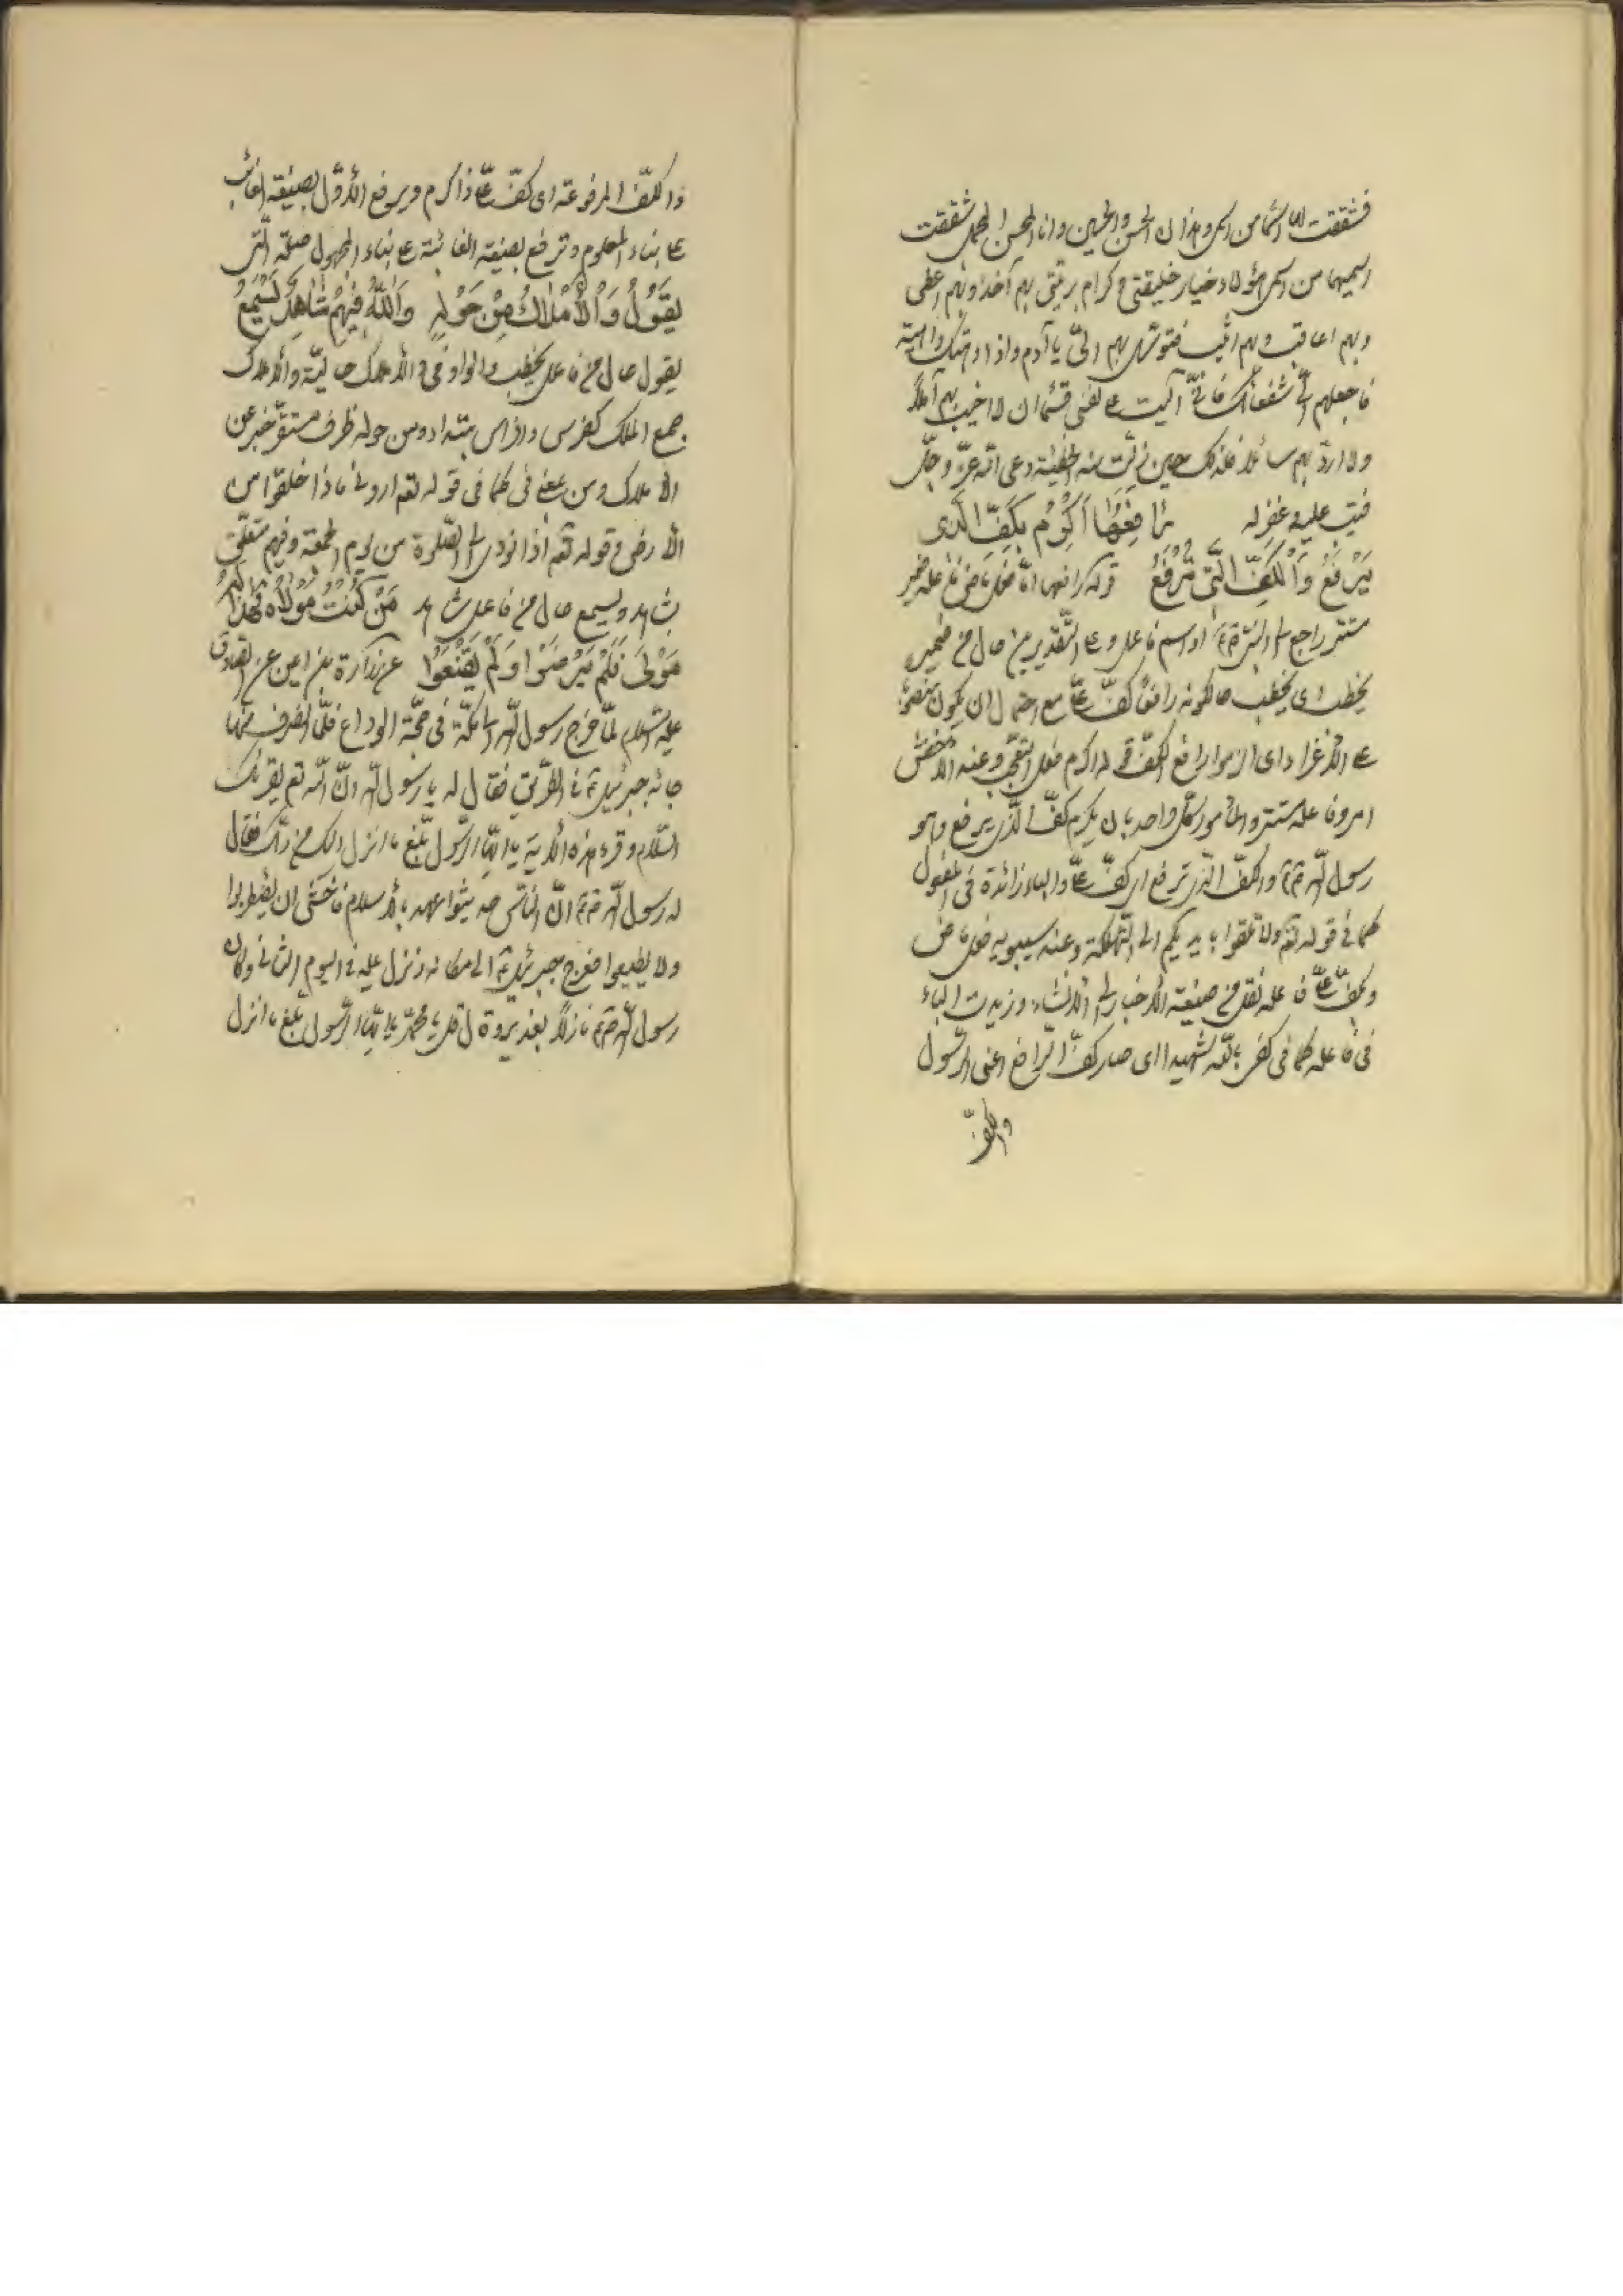 فشققت لها اسما من اسمی وهذان الحسن والحسین وانا المحسن المجمل شققت
اسمیهما من اسمی هؤلاء خیار خلیقتی وکرام بریتی بهم آخذ وبهم اعطی
وبهم اعاقب وبهم اثیب فتوسل بهم الیّ یا آدم واذا دهتک داهیة
فاجعلهم الیّ شفعائک فانی آلیت علی نفسی قسما ان لا اخیب بهم آملاً
ولا اردّ بهم سائلا فلذلک حین زلّت منه الخطیئة دعی الله عزّ وجلّ
فتیب علیه وغفر له رَافِعُهَا اَکْرِمْ بِکَفِّ الَّذی
یَرْفَعُ وَالْکَفِّ الَّتی تُرْفَعُ قوله رافعها امّا فعل ماض فاعله ضمیر
مستتر راجع الی النبیّ ص او اسم فاعل وعلی التّقدیرین حال من ضمیر
یخطب ای یخطب حالکونه رافعاً کفّ علیّ مع احتمال ان یکون منصوبا
علی الاغراء ای الزموا رافع الکفّ قوله اکرم فعل التعجّب وعند الاخفش
امر وفاعله مستتر والمأمور کلّ واحد بان یکرم کفّ الّذی یرفع وهو
رسول الله ص والکفّ الّتی ترفع ای کفّ علیّ والباء زائدة فی المفعول
کما فی قوله تعم ولا تلقوا بایدیکم الی التّهلکة وعند سیبویه فعل ماض
وبکفّ علیّ فاعله نقل من صیغة الاخبار الی الانشاء وزیدت الباء
فی فاعله کما فی کفی بالله شهیدا ای صار کفّ الرافع اعنی الرّسول
والکفّ
ذا کفّ المرفوعة ای کفّ علیّ ذا کرم ویرفع الاوّل بصیغة الغائب
علی بناء المعلوم وترفع بصیغة الغائبة علی بناء المجهول صلة الّتی
یَقُولُ وَالْاَمْلَاکُ مِنْ حَوْلِهِ وَاللهُ فِیهِمْ شَاهِدٌ یَسْمَعُ
یقول حال من فاعل یخطب والواو فی والاملاک حالیّة والاملاک
جمع الملک کفرس وافراس مبتداء ومن حوله ظرف مستقرّ خبر عن
الاملاک ومن بمعنی فی کما فی قوله تعم ارونی ماذا خلقوا من
الارض وقوله تعم اذا نودی الی الصّلوة من یوم الجمعة وفیهم متعلّق
بشاهد ویسمع حال من فاعل شاهد مَنْ کُنْتُ مَوْلَاهُ فَهَذَا لَهُ
مَوْلیً فَلَمْ یَرْضَوْا وَلَمْ یَقْنَعُوا عن زرارة بن اعین عن الصّادق
علیه السّلام لمّا خرج رسول الله الی مکّة فی حجّة الوداع فلمّا انصرف منها
جائه جبرئیل ع فی الطّریق فقال له یا رسول الله انّ الله تعم یقرئک
السّلام وقرء هذه الآیة یا ایّها الرّسول بلّغ ما انزل الیک من ربّک فقال
له رسول الله ص انّ النّاس حدیثوا عهد بالاسلام فاخشی ان یضطربوا
ولا یطیعوا فعرج جبرئیل ع الی مکانه ونزل علیه فی الیوم الثانی وکان
رسول الله ص نازلاً بغدیر قال یا محمّد یا ایّها الرّسول بلّغ ما انزل